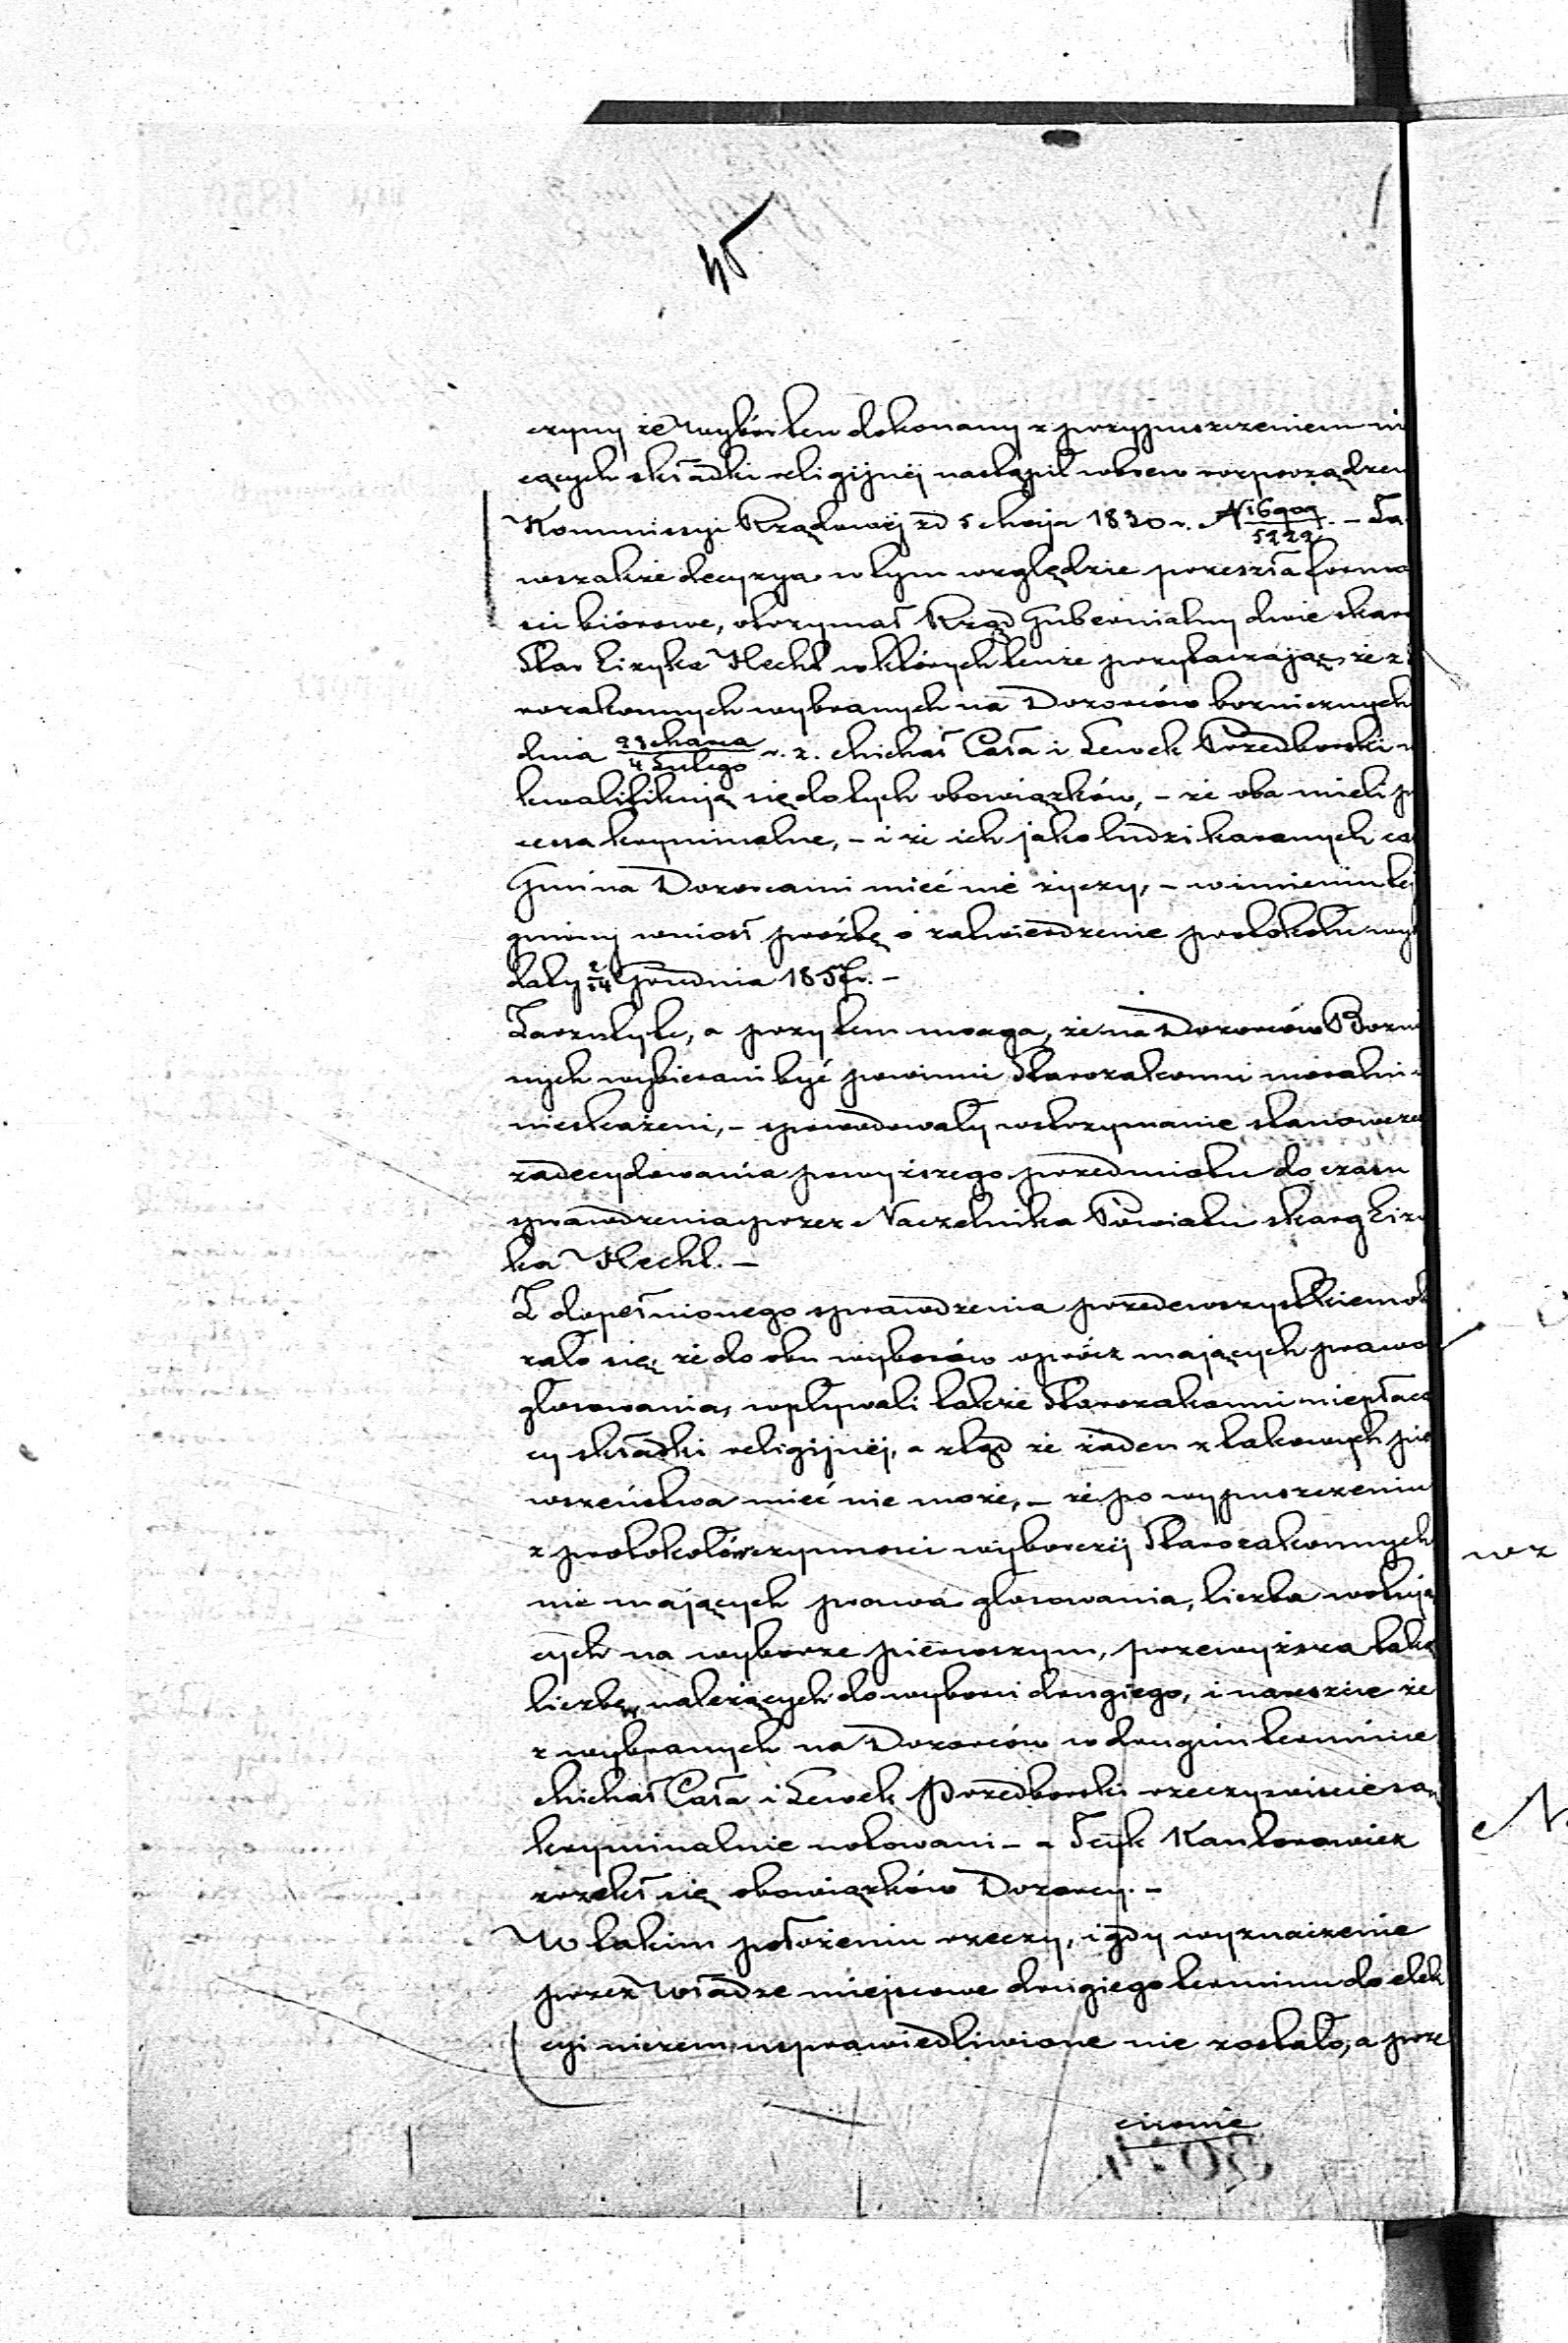 45
czyny że wybór ten dokonany z przypuszczeniem ni
cących składki religijnej nastąpił wbrew rozporządzen
Kommissyi Rządowej z d 5 Maja 1830 r. N 16909/5222. – Za
wszakże decyzya w tym względzie przeszła forma
ści biórowe, otrzymał Rząd Gubernialny dwie skar
Star Eizyka Hecht w których tenże przytaczając, że z
rozakonnych wybranych na Dozorców bozniczych
dnia 23 Marca/4 Lutego r. z. Michał Cała i Lewek Przedborski n
kwalifikują się do tych obowiązków, – że oba mieli p
cessa kryminalne, – i że ich jako ludzi karanych ca
Gmina Dozorcami mieć nie życzy, – w imieniu tej
gminy wniósł prośbę o zatwierdzenie protokołu wy
daty 2/14 Grudnia 1857 r. –
Zarzuty te, a przytem uwaga, że na Dozorców Bozni
nych wybierani być powinni Starozakonni moralni i
nieskażeni, – spowodowały wstrzymanie stanowcze
zadecydowania powyższego przedmiotu do czasu
sprawdzenia przez Naczelnika Powiatu skarg Eizy
ka Hecht. –
Z dopełnionego sprawdzenia przedewszystkiem ok
zało się, że do obu wyborów oprócz mających prawo
głosowania, wpływali także Starozakonni niepłacą
cy składki religijnej, a ztąd że żaden z takowych pie
wszeństwa mieć nie może, – że po wypuszczeniu
z protokołów czynności wyborczej Starozakonnych
nie mających prawa głosowania, liczba wotują
cych na wyborze pierwszym, przewyższa taką
liczbę, należących do wyboru drugiego, i nareszcie że
z wybranych na Dozorców w drugim terminie
Michał Cała i Lewek Przedborski rzeczywiście są
kryminalnie notowani – a Icyk Kantorowicz
zrzekł się obowiązków Dozorcy. –
W takim położeniu rzeczy, i gdy wyznaczenie
przez władze miejscowe drugiego terminu do elek
cyi niczem usprawiedliwione nie zostało, a prze
ciwnie
wz
N